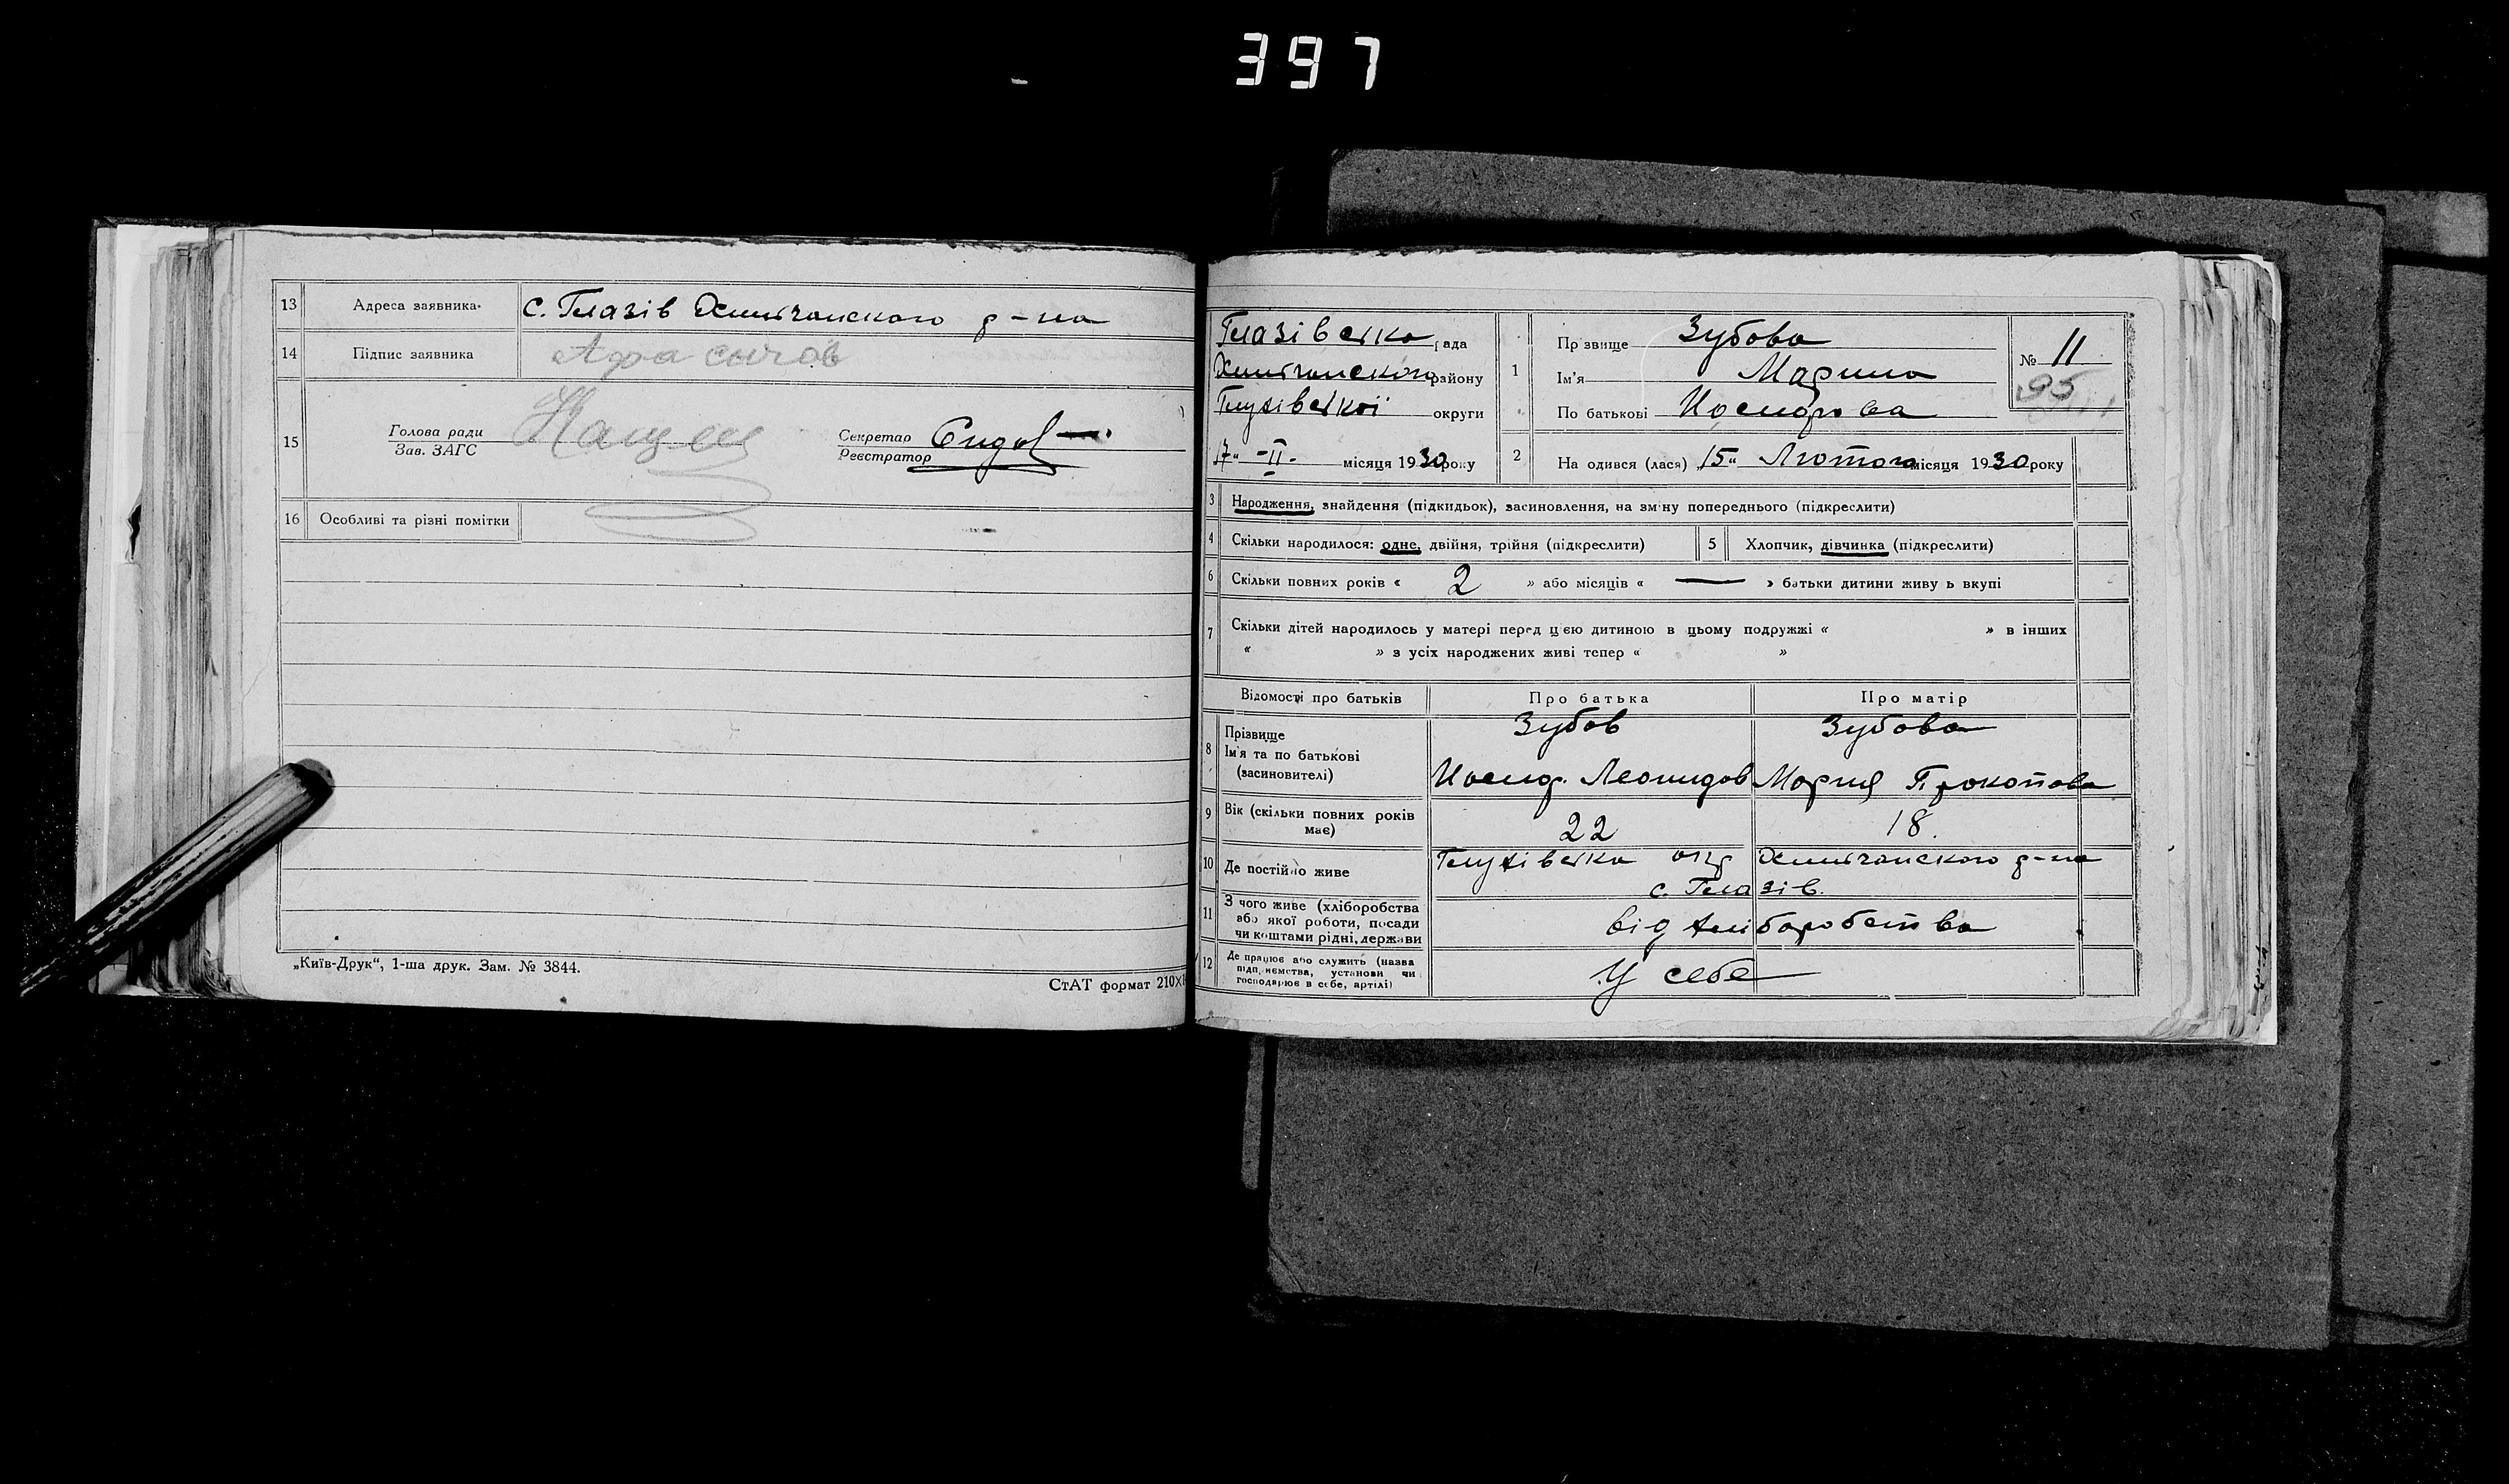 397
13 Адреса заявника. с. Глазів Хильчанского р-на
14 Підпис заявника
15 Голова ради
Зав. ЗАГС
Секретар
Реєстратор
16 Особливі та різні помітки
„Київ-Друк“, 1-ша друк. Зам. № 3844.
СтАТ формат 210×
Глазівська рада
Хильчанского району
Глухівської округи
17 - II - місяця 1930 року
1 Прізвище Зубова
Ім'я Марина
По батькові Иосифова
№ 11
95
2 На одився (лася) „15“ Лютого місяця 1930 року
3 Народження, знайдення (підкидьок), засиновлення, на зміну попереднього (підкреслити)
4 Скільки народилося: одне, двійня, трійня (підкреслити)
5 Хлопчик, дівчинка (підкреслити)
6 Скільки повних років « 2 » або місяців « — » батьки дитини живу ь вкупі
7 Скільки дітей народилось у матері перед цією дитиною в цьому подружжі « » в інших
« » з усіх народжених живі тепер « »
Відомості про батьків Про батька Про матір
8 Прізвище Зубов Зубова
Ім'я та по батькові
(засиновителі) Иосиф. Леонидов Мария Прокопова
9 Вік (скільки повних років має) 22 18.
10 Де постійно живе Глухівська окр Хильчанского р-на
с. Глазів.
11 З чого живе (хліборобства
або якої роботи, посади
чи коштами рідні, держави від хліборобства
12 Де працює або служить (назва
підприємства, установи чи
господарює в себе, артілі) У себе